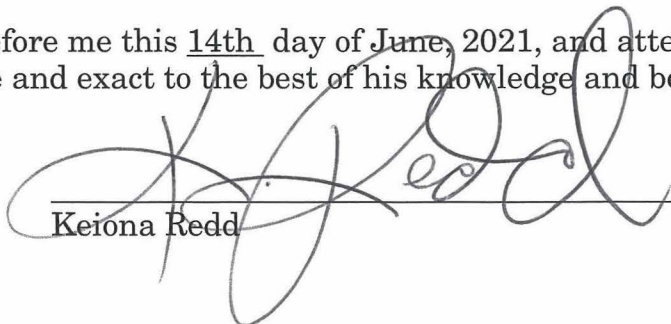 efore me this 14th day of June, 2021, and atte
e and exact to the best of his knowledge and be
K. Redd
Keiona Redd